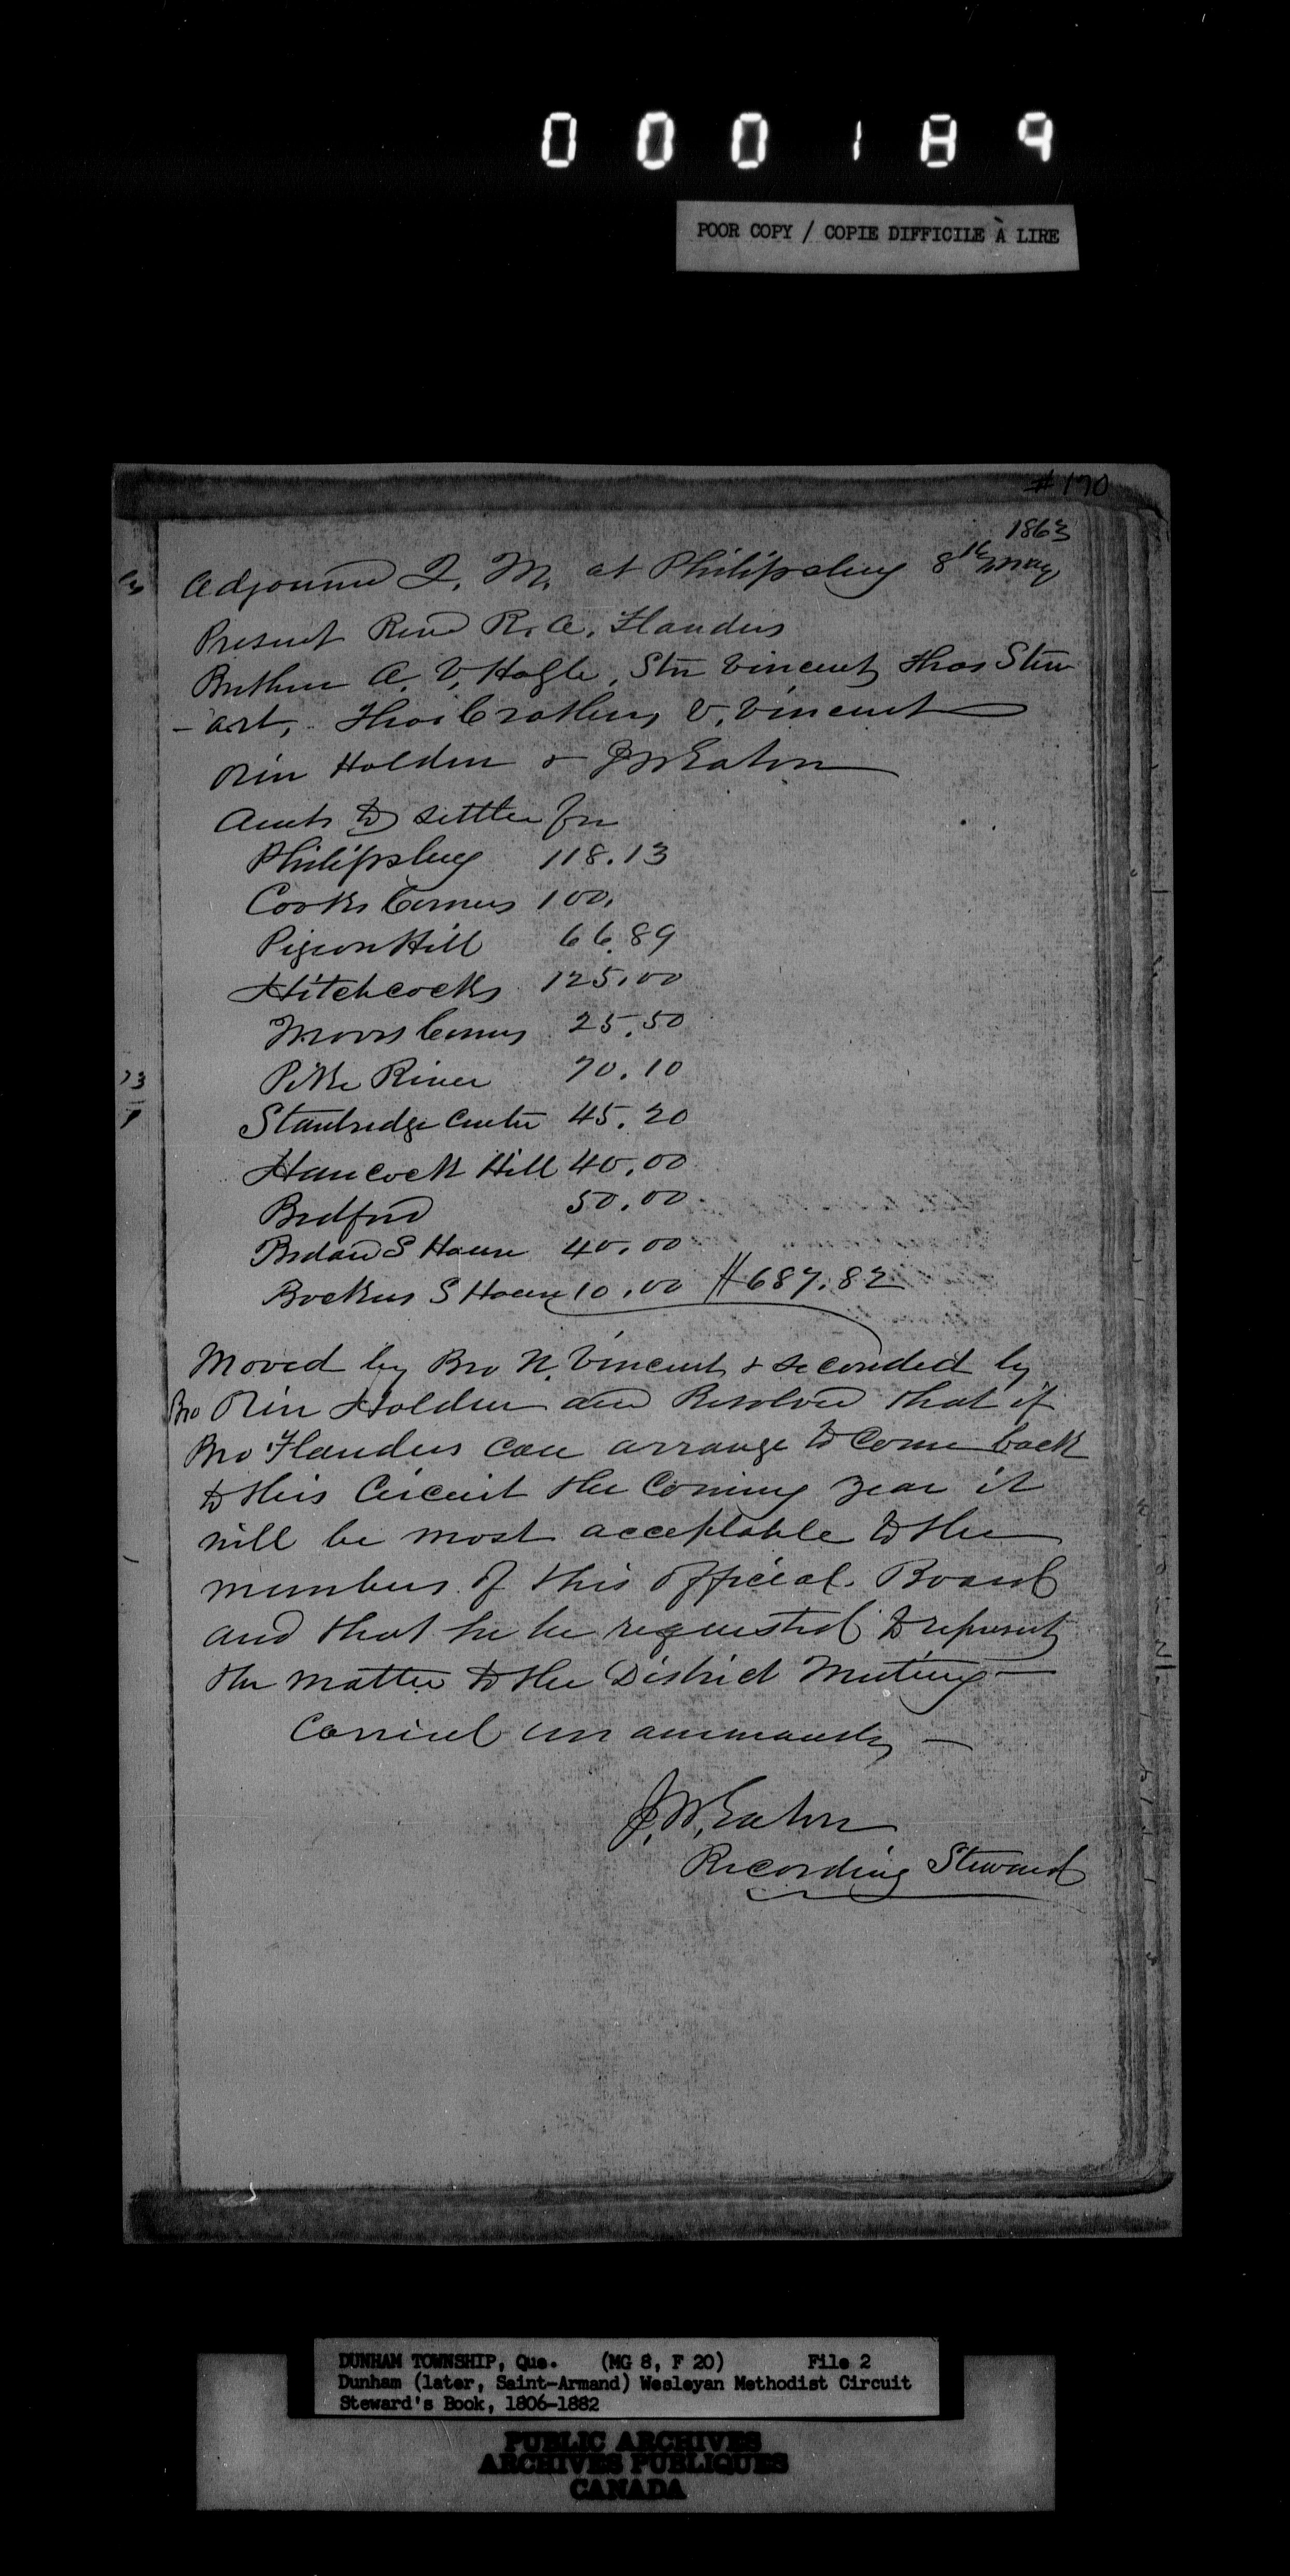 000189
POOR COPY / COPIE DIFFICILE À LIRE
#170
1863
Adjourned Q. M. at Philipsburg 8th May
Present Revd R. A. Flanders
Brethren A. V. Hogle, Stn Vincent, Thos Stew
- art, Thos Crothers, V. Vincent
Orin Holden & J W Eaton
Amts to settle for
Philipsburg 118.13
Cooks Corners 100.
Pigeon Hill 66.89
Hitchcocks 125.00
Moors Corners 25.50
Pike River 70.10
Stanbridge Center 45.20
Hancock Hill 40.00
Bedford 50.00
S House 40.00
Bockus S House 10.00 $687.82
Moved by Bro N. Vincent & seconded by
Bro Orin Holden and Resolved that if
Bro Flanders can arrange to come back
to this Circuit the Coming year it
will be most acceptable to the
members of this official Board
and that he be requested to represent
the matter to the District Meeting —
Carried unanimously —
J. W. Eaton
Recording Steward
DUNHAM TOWNSHIP, Que. (MG 8, F 20) File 2
Dunham (later, Saint-Armand) Wesleyan Methodist Circuit
Steward's Book, 1806-1882
PUBLIC ARCHIVES
ARCHIVES PUBLIQUES
CANADA